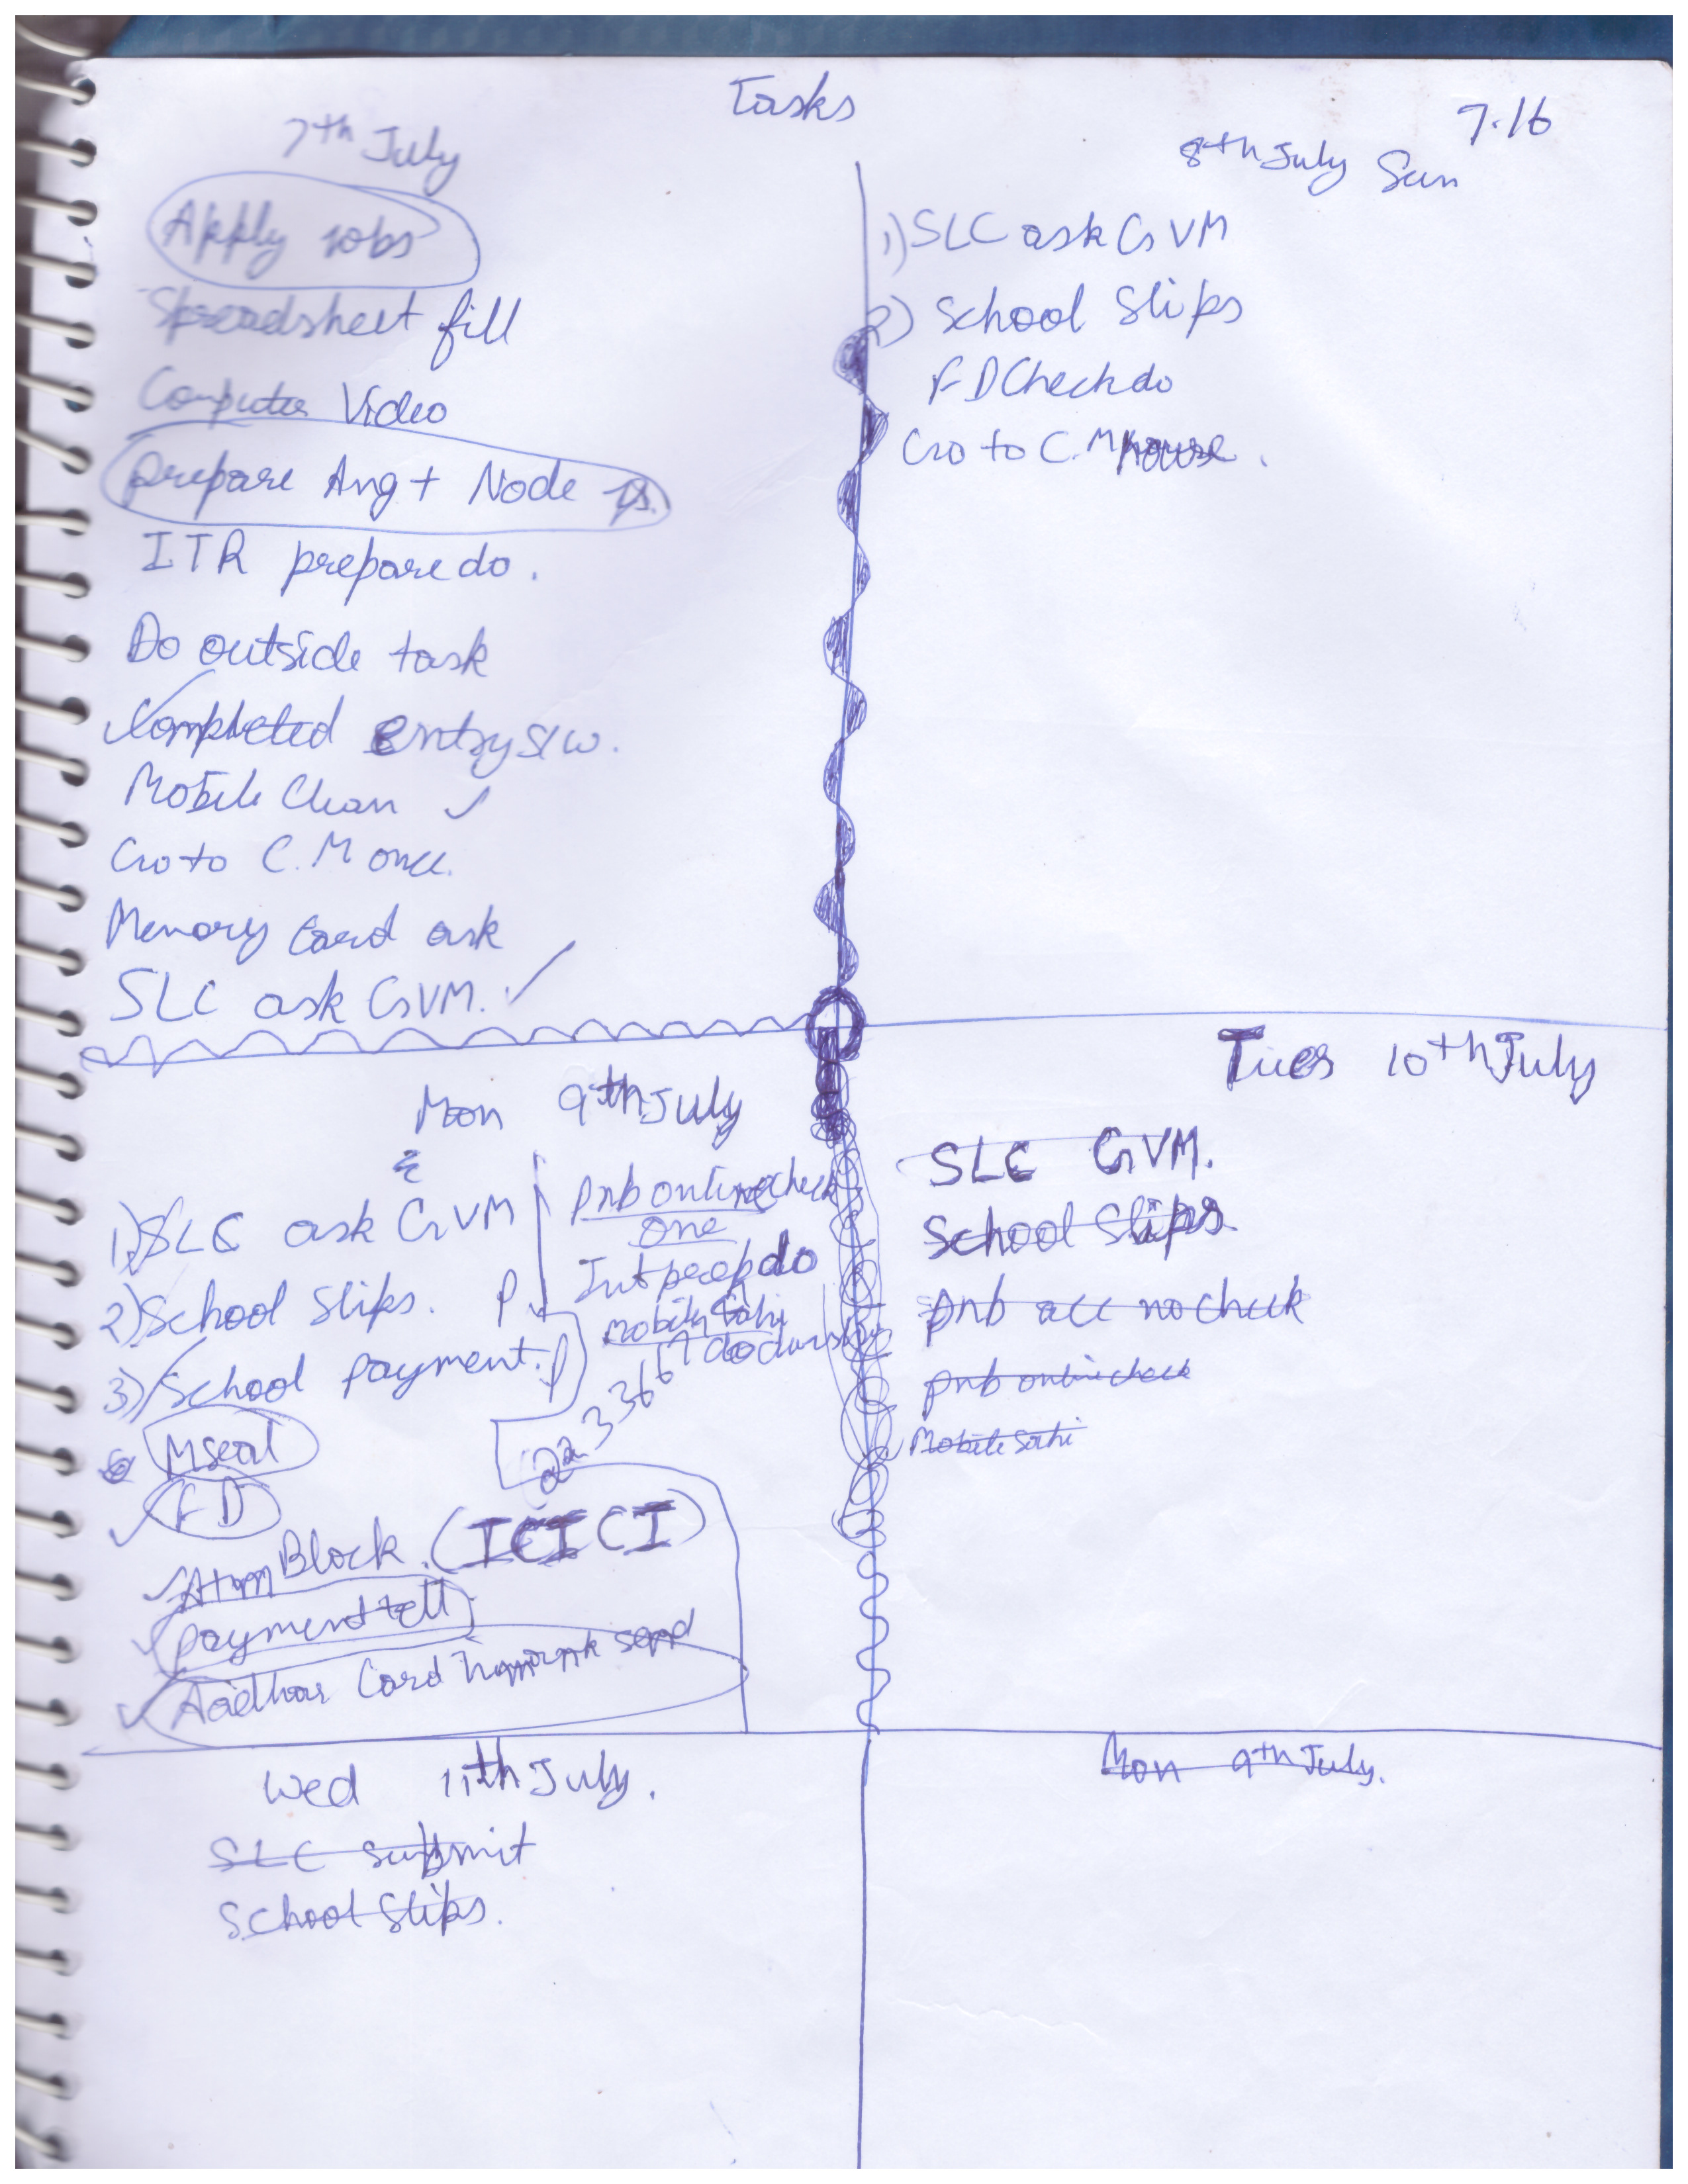 Tasks
7.16
7th July
Apply Jobs
Spreadsheet fill
Computer Video
Prepare Ang + Node
ITR prepare do.
Do outside task
Completed entry S/W.
Mobile Clean
Go to C.M once.
Memory Card ask
SLC ask GVM.
8th July Sun
1) SLC ask GVM
2) School Slips
FD Check do
Go to C.M house.
Mon 9th July
1) SLC ask GVM
2) School Slips.
3) School payment.
Mseal
FD
Atm Block. (ICICI)
payment tell
Aadhar Card send
pnb online check
one
Int prep do
Tues 10th July
SLC GVM.
School Slips
pnb acc no check
pnb online check
Mobile Sahi
Wed 11th July.
SLC Submit
School Slips.
Mon 9th July.